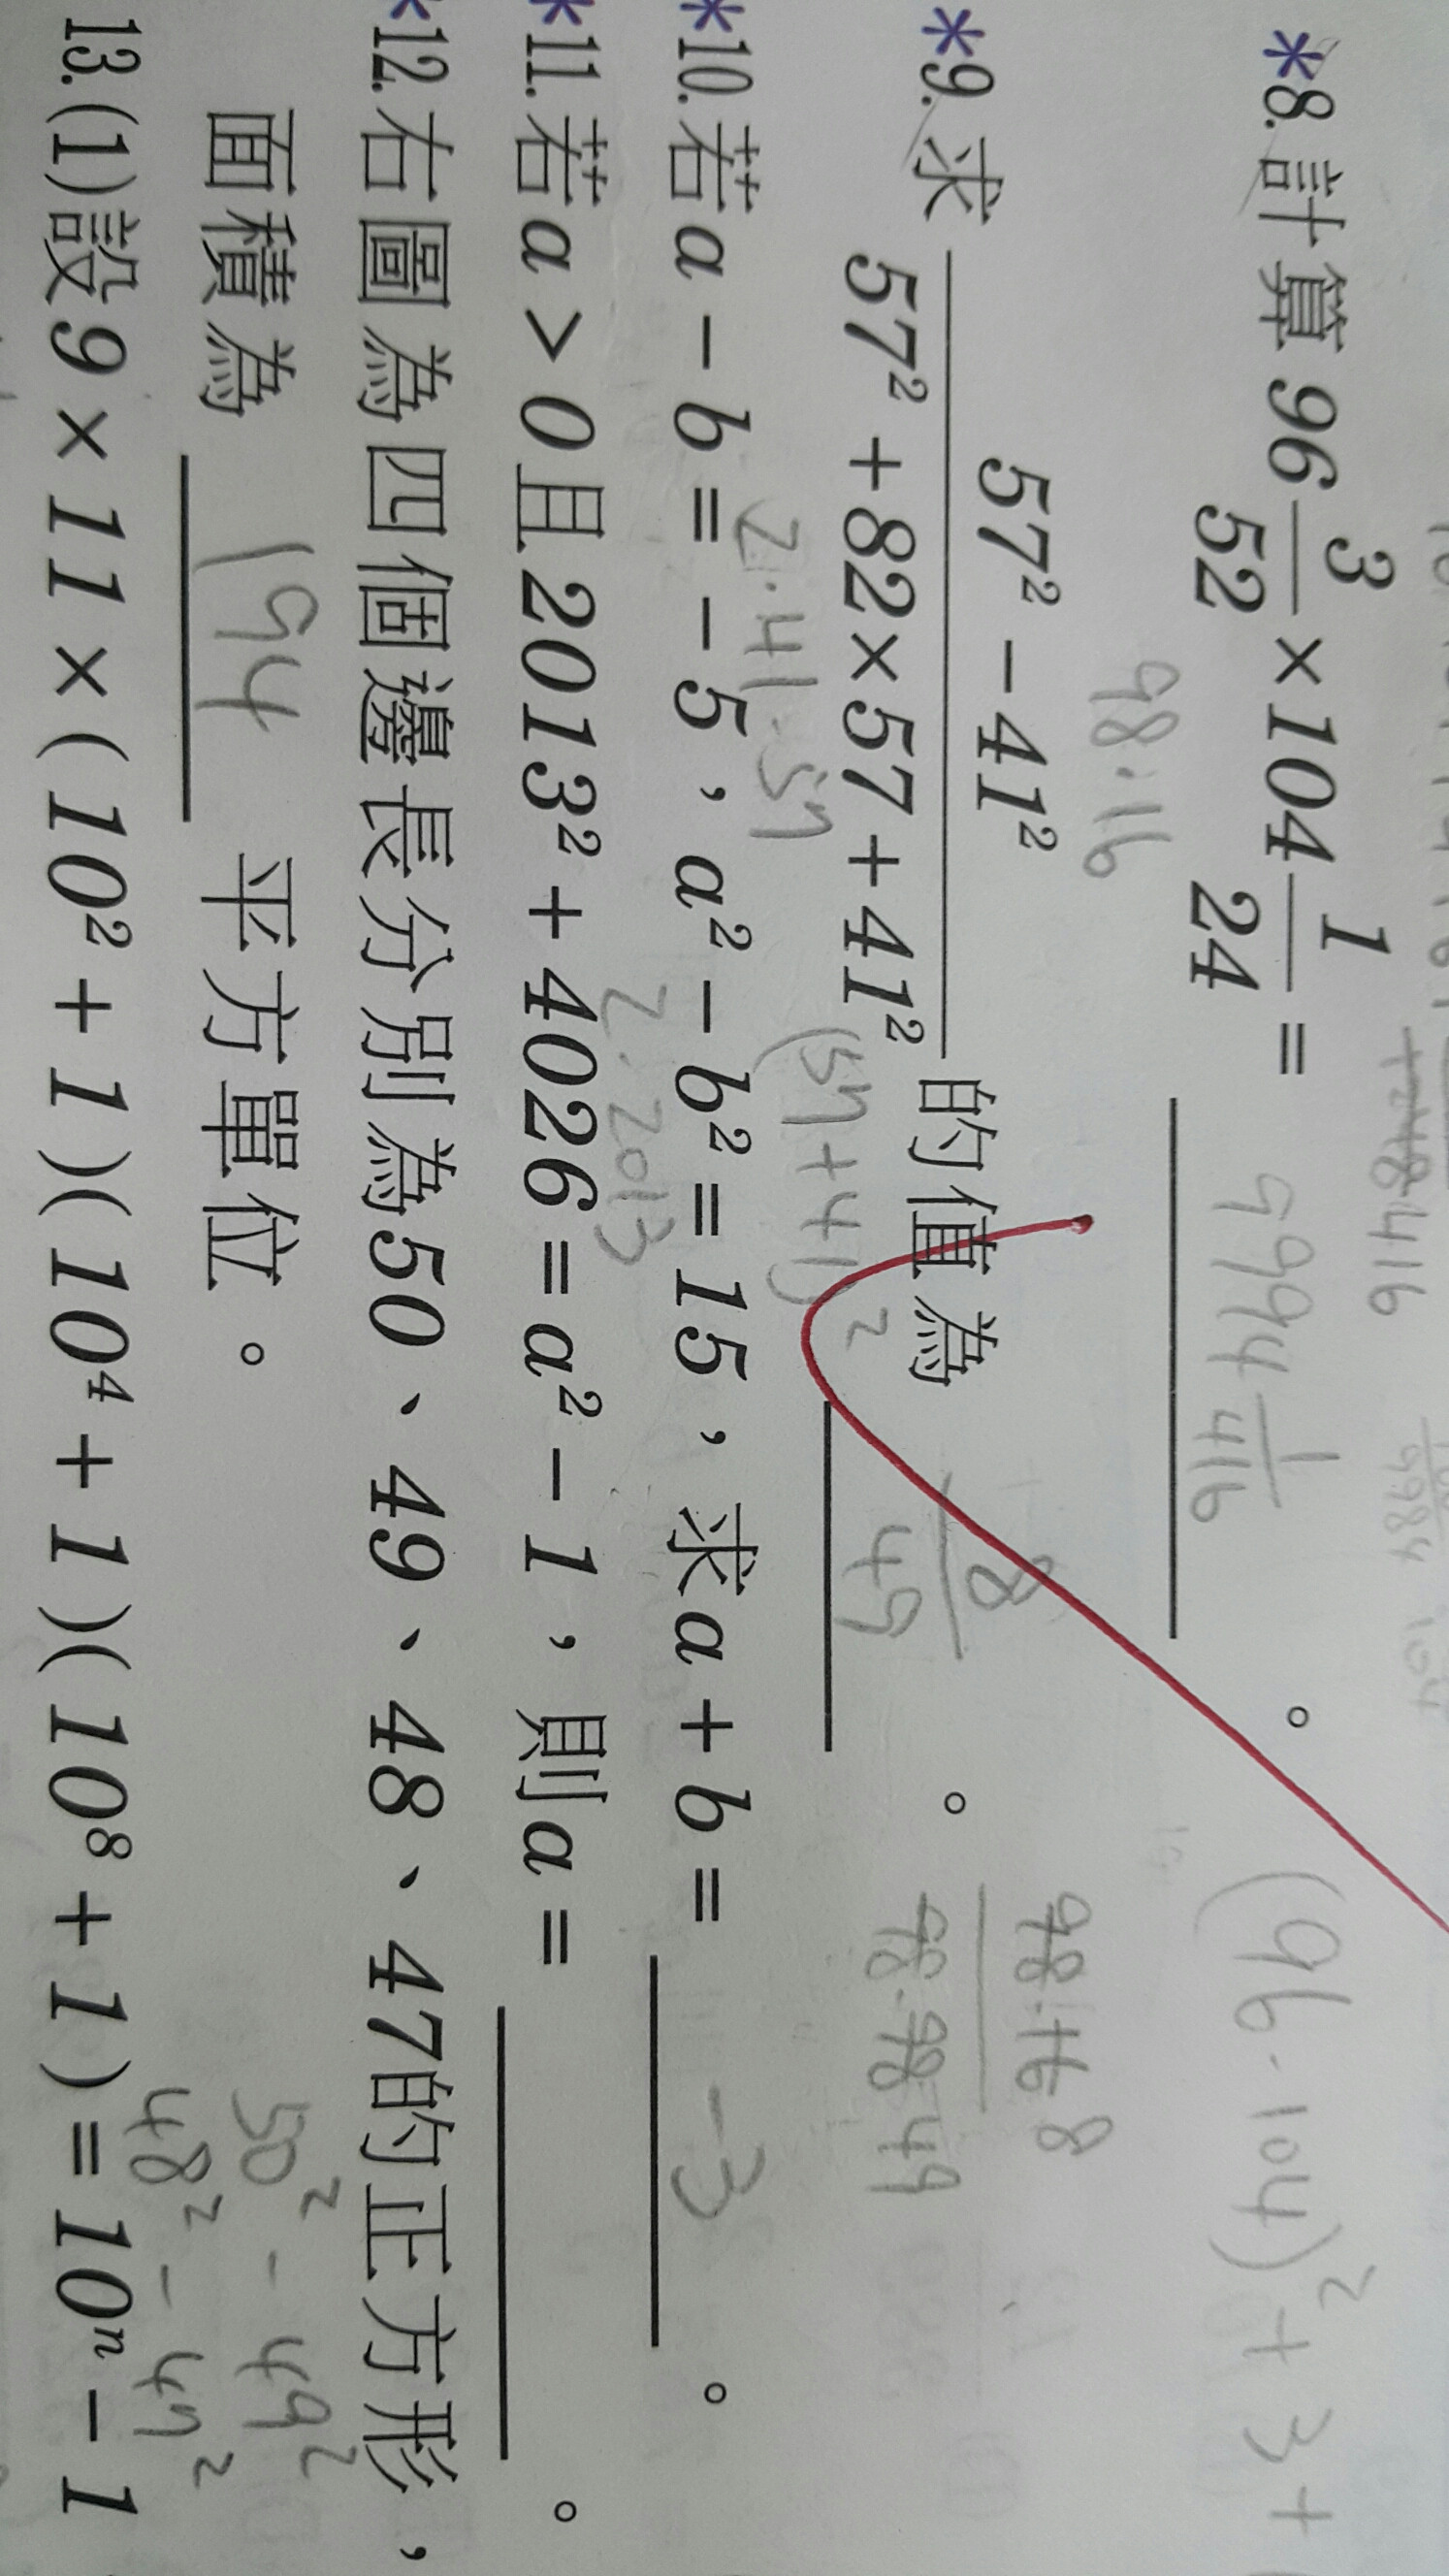 *8.計算 96 3/52 × 104 1/24 = 9994 1/416 。
98·16
(96·104)² + 3 +
*9.求 57² − 41² / 57² + 82×57 + 41² 的值為 8/49 。
98·16 8 / 98·98 49
2·41·57 (57+41)²
*10.若a − b = − 5,a² − b² = 15,求a + b = −3 。
*11.若a > 0且2013² + 4026 = a² − 1,則a = 。
2·2013
*12.右圖為四個邊長分別為50、49、48、47的正方形,
面積為 194 平方單位。
50² − 49²
48² − 47²
13.(1)設9 × 11 × ( 10² + 1 )( 10⁴ + 1 )( 10⁸ + 1 ) = 10ⁿ − 1